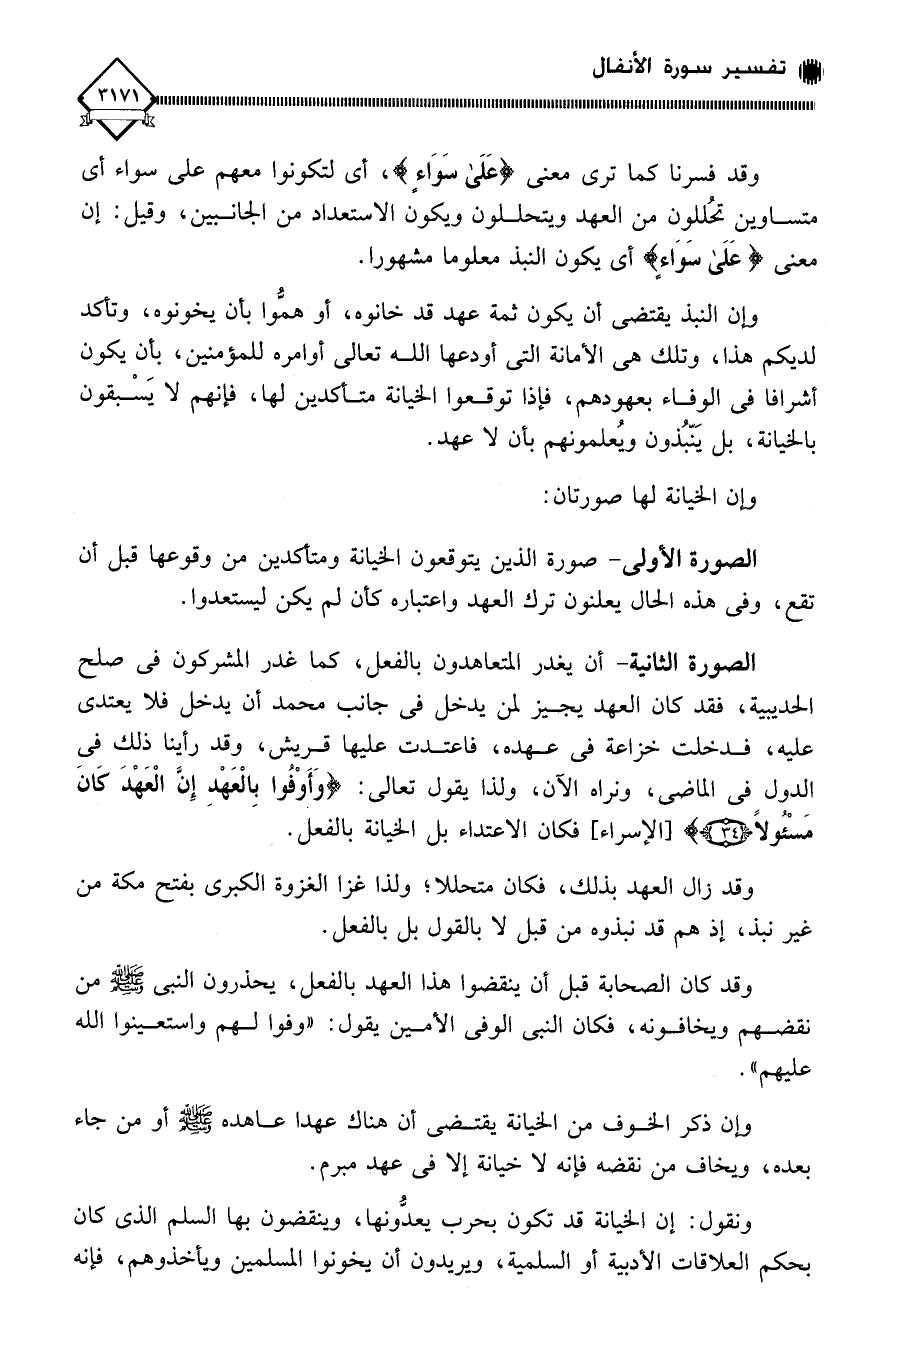 تفسير سورة الأنفال
٣١٧١
وقد فسرنا كما ترى معنى ﴿عَلَىٰ سَوَاءٍ﴾، أى لتكونوا معهم على سواء أى
متساوين تحُللون من العهد ويتحللون ويكون الاستعداد من الجانبين، وقيل: إن
معنى ﴿عَلَىٰ سَوَاءٍ﴾ أى يكون النبذ معلوما مشهورا.
وإن النبذ يقتضى أن يكون ثمة عهد قد خانوه، أو همُّوا بأن يخونوه، وتأكد
لديكم هذا، وتلك هى الأمانة التى أودعها الله تعالى أوامره للمؤمنين، بأن يكون
أشرافا فى الوفاء بعهودهم، فإذا توقعوا الخيانة متأكدين لها، فإنهم لا يَسْبقون
بالخيانة، بل يَنّبُذون ويُعلمونهم بأن لا عهد.
وإن الخيانة لها صورتان:
الصورة الأولى- صورة الذين يتوقعون الخيانة ومتأكدين من وقوعها قبل أن
تقع، وفى هذه الحال يعلنون ترك العهد واعتباره كأن لم يكن ليستعدوا.
الصورة الثانية- أن يغدر المتعاهدون بالفعل، كما غدر المشركون فى صلح
الحديبية، فقد كان العهد يجيز لمن يدخل فى جانب محمد أن يدخل فلا يعتدى
عليه، فدخلت خزاعة فى عهده، فاعتدت عليها قريش، وقد رأينا ذلك فى
الدول فى الماضى، ونراه الآن، ولذا يقول تعالى: ﴿وَأَوْفُوا بِالْعَهْدِ إِنَّ الْعَهْدَ كَانَ
مَسْئُولاً ﴿٣٤﴾﴾ [الإسراء] فكان الاعتداء بل الخيانة بالفعل.
وقد زال العهد بذلك، فكان متحللا؛ ولذا غزا الغزوة الكبرى بفتح مكة من
غير نبذ، إذ هم قد نبذوه من قبل لا بالقول بل بالفعل.
وقد كان الصحابة قبل أن ينقضوا هذا العهد بالفعل، يحذرون النبى ﷺ من
نقضهم ويخافونه، فكان النبى الوفى الأمين يقول: «وفوا لهم واستعينوا الله
عليهم».
وإن ذكر الخوف من الخيانة يقتضى أن هناك عهدا عاهده ﷺ أو من جاء
بعده، ويخاف من نقضه فإنه لا خيانة إلا فى عهد مبرم.
ونقول: إن الخيانة قد تكون بحرب يعدُّونها، وينقضون بها السلم الذى كان
بحكم العلاقات الأدبية أو السلمية، ويريدون أن يخونوا المسلمين ويأخذوهم، فإنه